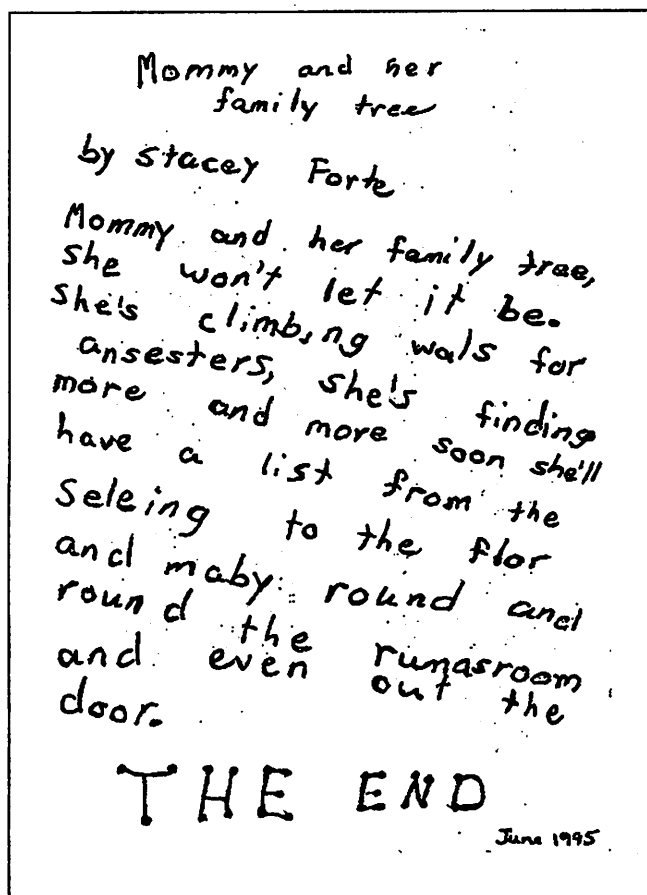 Mommy and her
family tree
by Stacey Forte
Mommy and her family tree,
she won't let it be.
she's climbing wals for
ansesters, she's finding
more and more soon she'll
have a list from the
Seleing to the flor
and maby round and
round the runasroom
and even out the
door.
THE END
June 1995